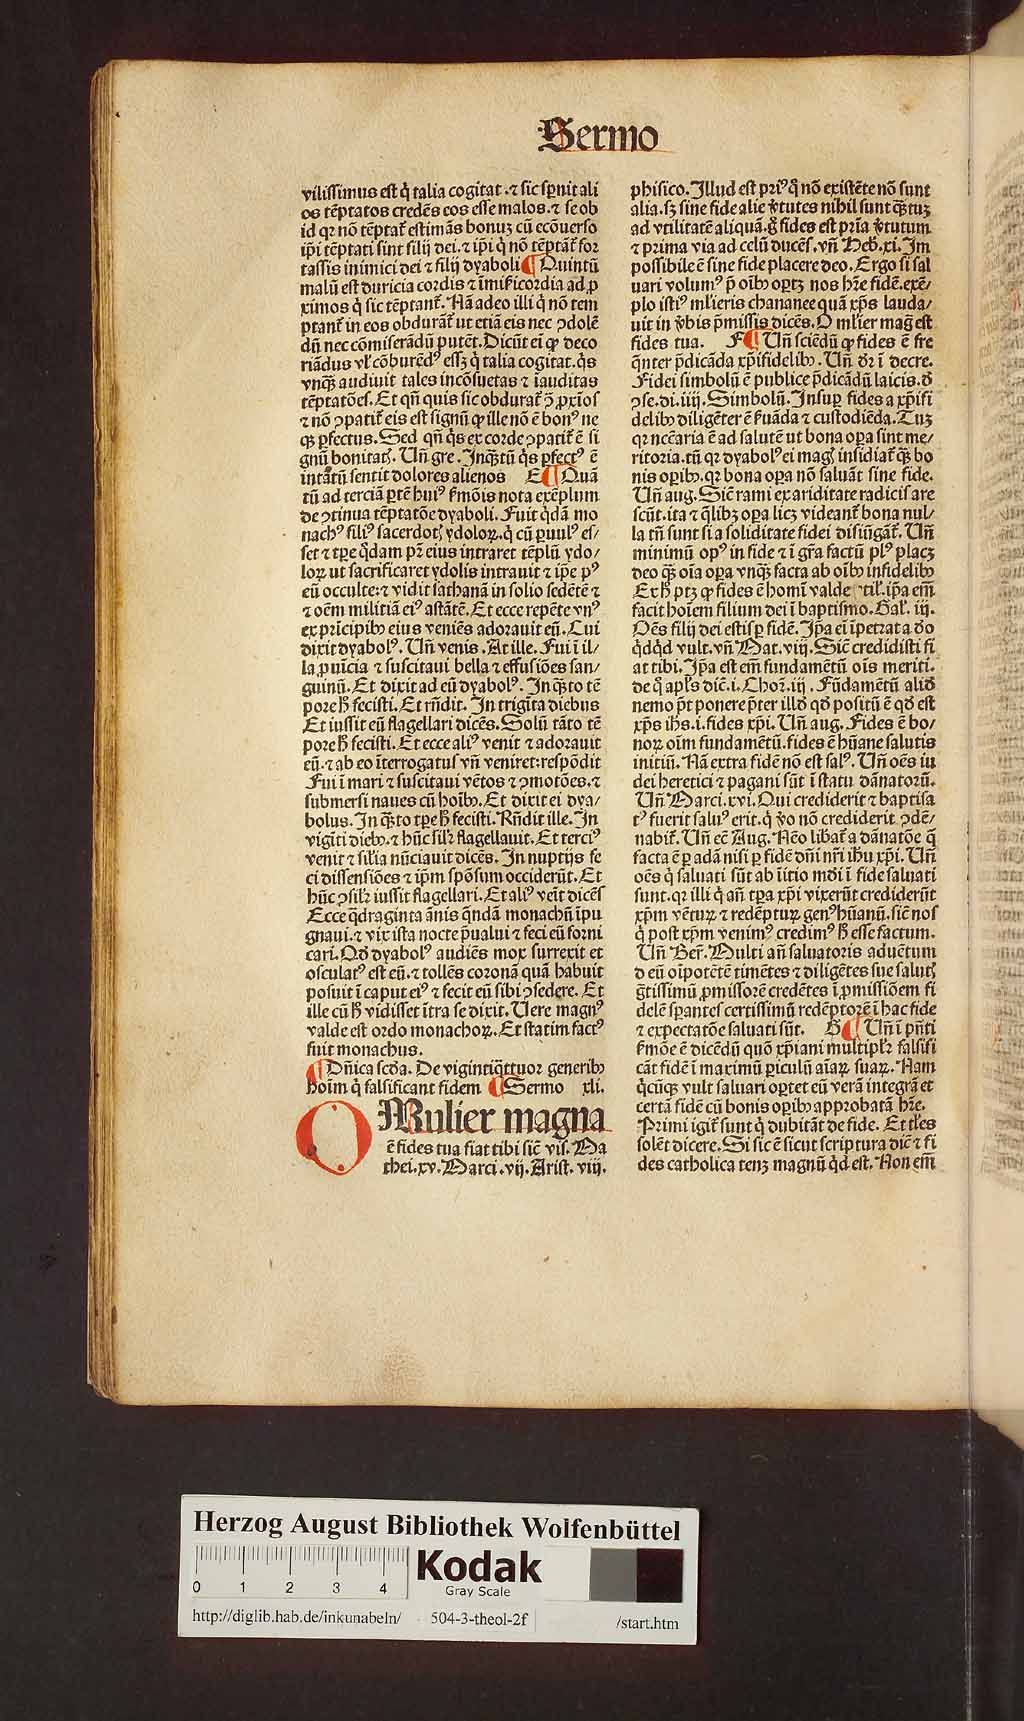 Sermo
vilissimus est q̇ talia cogitat .⁊ sic sꝑnit ali
os tēptatos credēs eos esse malos.⁊ se ob
id qꝛ nō tēptat᷑ estimās bonuꝫ cū ecōuerso
ip̄i tēptati sint filij dei.⁊ ip̄i q̇ nō tēptāt᷑ for
tassis inimici dei ⁊ filij dyaboli ¶ Quintū
malū est duricia cordis ⁊ īmis̄icordia ad ꝓ
ximos q̇ sic tēptant᷑. Nā adeo illi q̇ nō tem
ptant᷑ in eos obdurāt᷑ ut etiā eis nec ꝯdolē
dū nec cōmiserādū putēt. Dicūt ei ꝙ deco
riādus vl̓ cōburēdꝰ esseꝫ q̇ talia cogitat. q̇s
vnq̄ꝫ audiuit tales incōsuetas ⁊ īauditas
tēptatōes. Et qn̄ quis sic obdurat᷑ ꝯ̄ ꝓxīos
⁊ nō ꝯpatit᷑ eis est signū ꝙ ille nō ē bonꝰ ne
q̄ꝫ ꝑfectus. Sed qn̄ q̇s ex corde ꝯpatit᷑ ē si
gnū bonitatꝭ. Vn̄ gre. Inq̄ꝫtū q̇s ꝑfectꝰ ē
intātū sentit dolores alienos E ¶ Quā
tū ad terciā ꝑtē huiꝰ ẜmōis nota exēplum
de ꝯtinua tēptatōe dyaboli. Fuit q̇dā mo
nachꝰ filiꝰ sacerdotꝭ ydoloꝝ. q̇ cū ꝑuulꝰ es/
set ⁊ tꝑe q̇dam pr̄ eius intraret tēplū ydo/
loꝝ ut sacrificaret ydolis intrauit ⁊ ip̄e pꝰ
eū occulte: ⁊ vidit sathanā in solio sedētē ⁊
⁊ oēm militiā eiꝰ astātē. Et ecce repēte vnꝰ
ex prīcipibꝰ eius veniēs adorauit eū. Cui
dixit dyabolꝰ. Vn̄ venis. At ille. Fui ī il/
la ꝓuīcia ⁊ suscitaui bella ⁊ effusiōes san/
guinū. Et dixit ad eū dyabolꝰ. In q̄ꝫto tē
pore h̓ fecisti. Et rn̄dit. In trigīta diebus
Et iussit eū flagellari dicēs. Solū tāto tē
pore h̓ fecisti. Et ecce aliꝰ venit ⁊ adorauit
eū.⁊ ab eo īterrogatus vn̄ veniret: respōdit
Fui ī mari ⁊ suscitaui vētos ⁊ ꝯmotōes.⁊
submersi naues cū hoībꝰ. Et dixit ei dya/
bolus. In q̄ꝫto tꝑe h̓ fecisti. Rn̄dit ille. In
vigīti diebꝰ.⁊ hūc sil̓r flagellauit. Et terciꝰ
venit ⁊ sil̓ia nūciauit dicēs. In nuptijs fe
ci dissensiōes ⁊ ip̄m spōsum occiderūt. Et
hūc ꝯsil̓r iussit flagellari. Et aliꝰ veīt dicēs
Ecce q̄draginta ānis q̄ndā monachū īpu
gnaui.⁊ vix ista nocte p̄ualui ⁊ feci eū forni
cari. Qd̓ dyabolꝰ audiēs mox surrexit et
osculatꝰ est eū.⁊ tollēs coronā quā habuit
posuit ī caput eiꝰ ⁊ fecit eū sibi ꝯsedere. Et
ille cū h̓ vidisset ītra se dixit. Uere magnꝰ
valde est ordo monachoꝝ. Et statim factꝰ
fuit monachus.
¶ Dn̄ica scd̓a. De vigintiq̄ttuor generibꝰ
hoīm q̇ falsificant fidem ¶ Sermo xli.
O Mulier magna
ē fides tua fiat tibi sic̄ vis. Ma
thei.xv. Marci.vij. Arist. viij.
phisico. Illud est priꝰ q̊ nō existēte nō sunt
alia. sꝫ sine fide alie v̓tutes nihil sunt q̄ꝫtuꝫ
ad vtilitatē aliquā. g̊ fides est prīa v̓tutum
⁊ prima via ad celū ducēs. vn̄ Heb̓. xi. Im
possibile ē sine fide placere deo. Ergo si sal
uari volumꝰ p̄ oībꝰ oꝑtꝫ nos hr̄e fidē. exē/
plo istiꝰ ml̓ieris chananee quā xp̄s lauda/
uit in v̓bis p̄missis dicēs. O ml̓ier mag̊ est
fides tua. F ¶ Vn̄ sciēdū ꝙ fides ē fre
q̄nter p̄dicāda xp̄ifidelibꝰ. Vn̄ dr̄ ī decre.
Fidei simbolū ē publice p̄dicādū laicis. d̓
ꝯse. di. iiij. Simbolū. Insuꝑ fides a xp̄ifi
delibꝰ diligēter ē ẜuāda ⁊ custodiēda. Tuꝫ
qꝛ ncēaria ē ad salutē ut bona oꝑa sint me/
ritoria. tū qꝛ dyabolꝰ ei magꝭ insidiat᷑ q̄ꝫ bo
nis oꝑibꝰ. qꝛ bona oꝑa nō saluāt sine fide.
Vn̄ aug. Sic̄ rami ex ariditate radicis are
scūt. ita ⁊ q̄libꝫ oꝑa licꝫ videant᷑ bona nul/
la tn̄ sunt si a soliditate fidei disiūgāt᷑. Vn̄
minimū opꝰ in fide ⁊ ī gr̄a factū plꝰ placꝫ
deo q̄ꝫ oīa oꝑa vnq̄ꝫ facta ab oībꝰ infidelibꝰ
Ex h̓ ptꝫ ꝙ fides ē homī valde vtil̓. ip̄a em̄
facit hoīem filium dei ī baptismo. Gal̓. iij.
Oēs filij dei estis ꝑ fidē. Ip̄a eī īpetrat a d̓o
q̇dq̇d vult. vn̄ Mat. viij. Sic̄ credidisti fi
at tibi. Ip̄a est em̄ fundamētū oīs meriti.
de q̊ apl̓s dic̄.i. Choꝝ. iij. Fūdamētū aliud̓
nemo p̄t ponere p̄ter illd̓ qd̓ positū ē qd̓ est
xp̄s ih̓s.i. fides xp̄i. Vn̄ aug. Fides ē bo/
noꝝ oīm fundamētū. fides ē hūane salutis
initiū. Nā extra fidē nō est salꝰ. Vn̄ oēs iu
dei heretici ⁊ pagani sūt ī statu dānatorū.
Vn̄ Marci.xvi. Qui crediderit ⁊ baptisa
tꝰ fuerit saluꝰ erit. q̇ v̓o nō crediderit ꝯdē/
nabit᷑. Vn̄ ec̄ Aug. Nēo libat᷑ a dānatōe q̄
facta ē ꝑ adā nisi ꝑ fidē dn̄i nr̄i ih̓u xp̄i. Vn̄
oēs q̇ saluati sūt ab īitio mūdi ī fide saluati
sunt. qꝛ illi q̇ an̄ tꝑa xp̄i vixerūt crediderūt
xp̄m vētuꝝ ⁊ redēptuꝝ genꝰ hūanū. sic̄ nos
q̇ post xp̄m venimꝰ credimꝰ h̓ esse factum.
Vn̄ Ber̄. Multi an̄ saluatoris aduētum
d̓ eū oīpotētē timētes ⁊ diligētes sue salutꝭ
g̊tissimū ꝓmissorē credētes ī ꝓmissiōem fi
delē sꝑantes certissimū redēptorē ī hac fide
⁊ expectatōe saluati sūt. G ¶ Vn̄ ī pn̄ti
ẜmōe ē dicēdū quō xp̄iani multipl̓r falsifi
cāt fidē ī maximū ꝑiculū aīaꝝ suaꝝ. Nam
q̇cūqꝫ vult saluari oꝑtet eū verā integrā et
certā fidē cū bonis oꝑibꝰ approbatā hr̄e.
Primi igit᷑ sunt q̇ dubitāt de fide. Et tl̓es
solēt dicere. Si sic ē sicut scriptura dic̄ ⁊ fi
des catholica tenꝫ magnū q̇d est. Non em̄
Herzog August Bibliothek Wolfenbüttel
0 1 2 3 4
Kodak
Gray Scale
http://diglib.hab.de/inkunabeln/ 504-3-theol-2f /start.htm